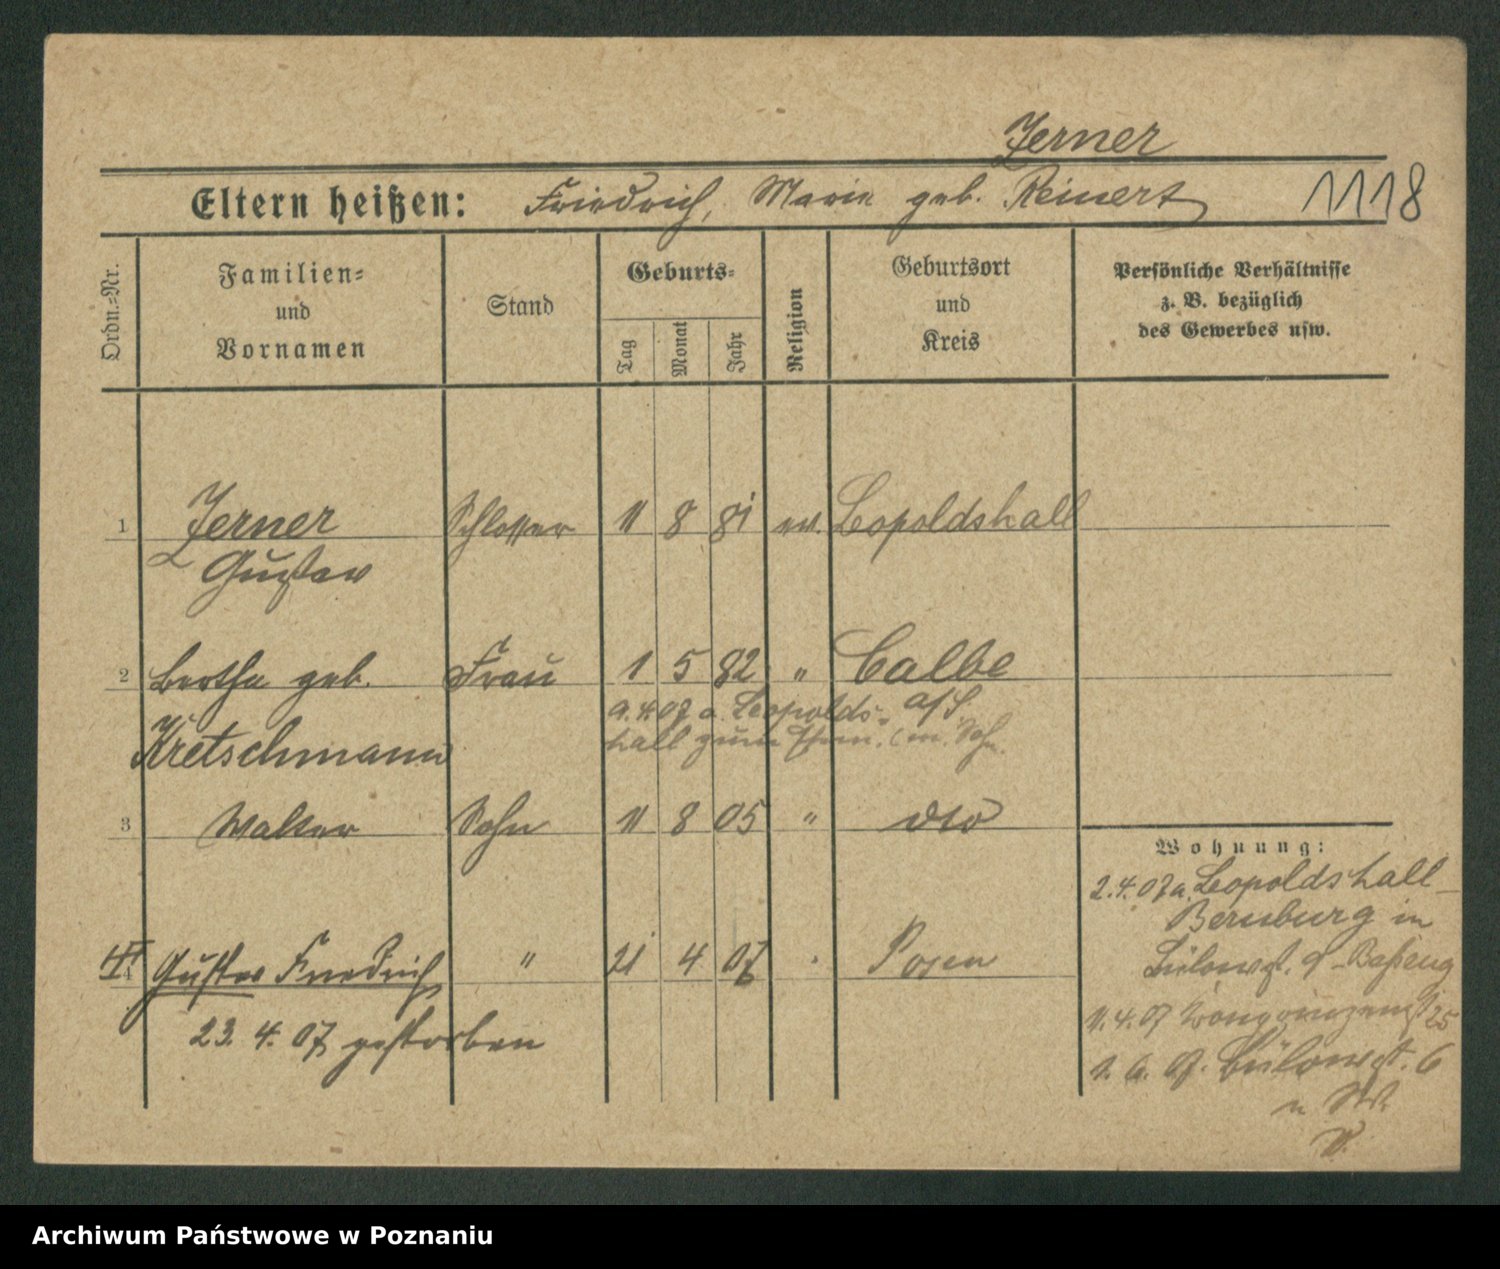 Zerner
Eltern heißen: Friedrich, Marie geb. Reinert 1118
Ordn.-Nr.
Familien-
und
Vornamen
Stand
Geburts-
Tag Monat Jahr
Religion
Geburtsort
und
Kreis
Persönliche Verhältnisse
z. B. bezüglich
des Gewerbes usw.
1 Zerner Schlosser 11 8 81 ev. Leopoldshall
Gustav
2 Bertha geb. Frau 1 5 82 " Calbe
a/S.
Kretschmann
hall zum
3 Walter Sohn 11 8 05 " dto
Wohnung:
2.4.07 a. Leopoldshall-
Bernburg in
4 Gustav Friedrich " 21 4 07 Posen
23. 4. 07 gestorben
11.4.07 25
Bülowst. 6
Archiwum Państwowe w Poznaniu